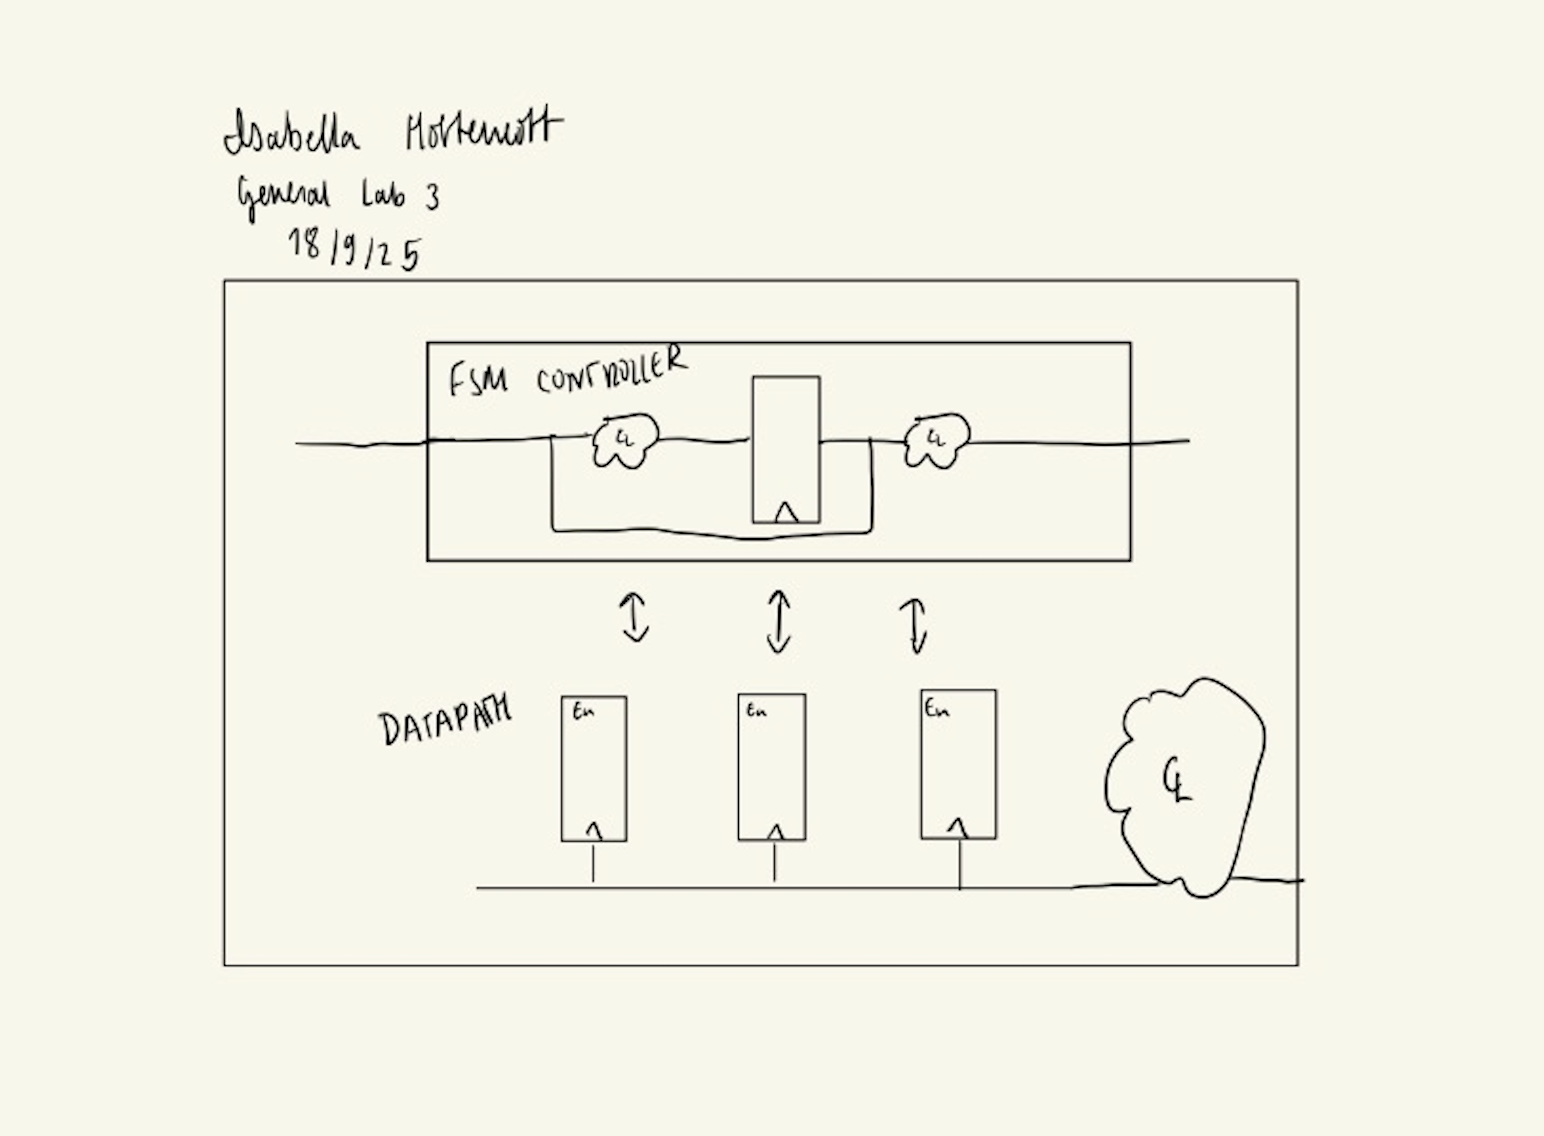 Isabella
General Lab 3
18/9/25
FSM CONTROLLER
CL
CL
DATAPATH
En
En
En
CL